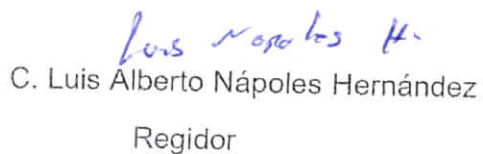 Luis Napoles H.
C. Luis Alberto Nápoles Hernández
Regidor